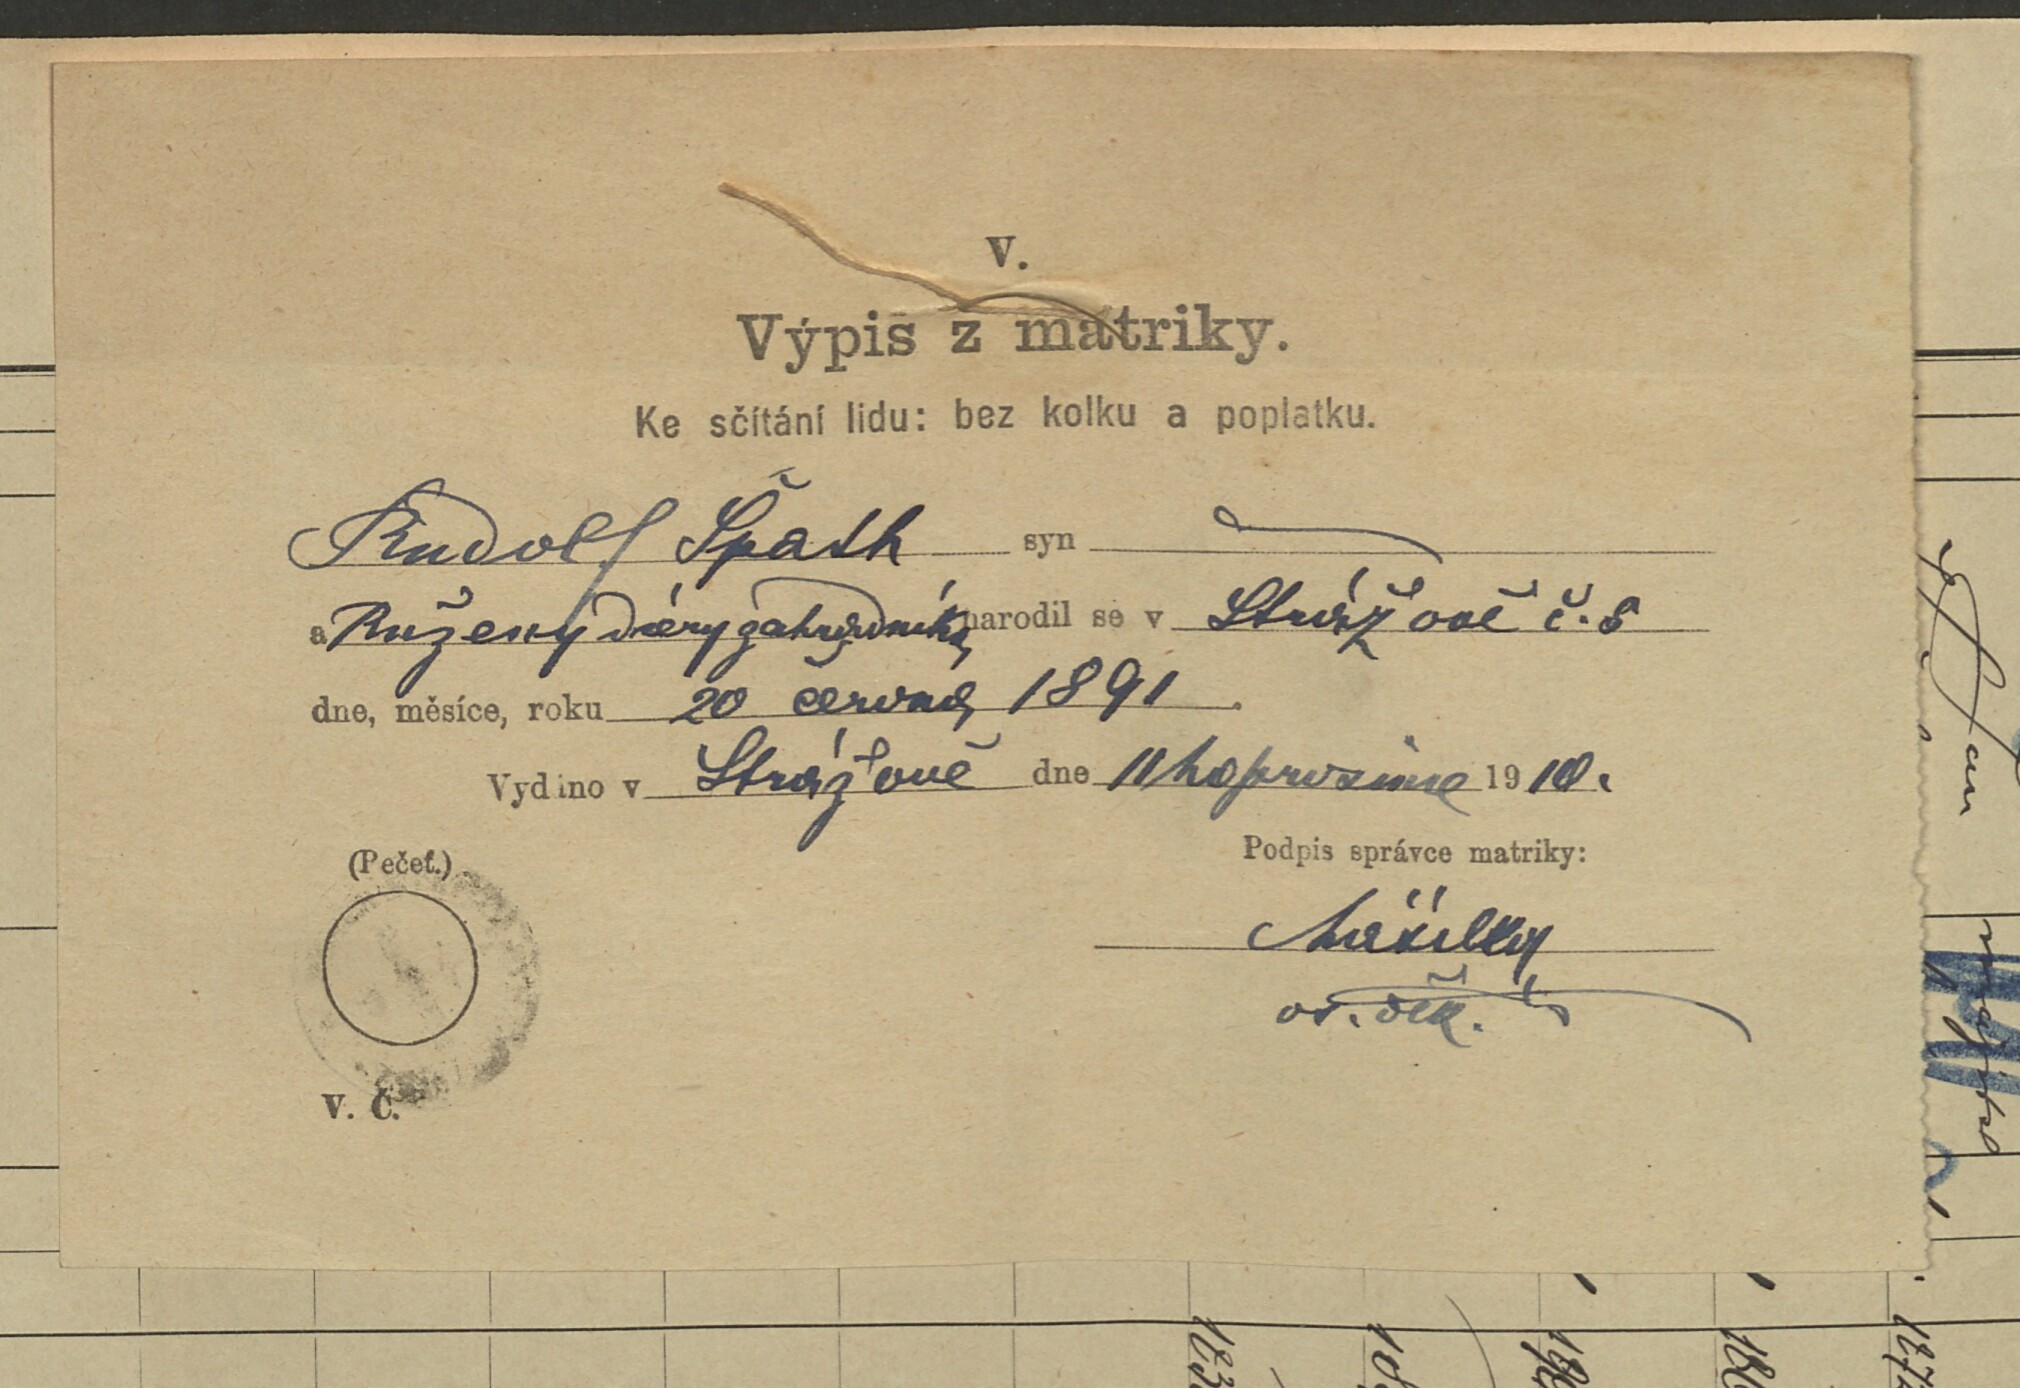 V.
Výpis z matriky.
Ke sčítání lidu: bez kolku a poplatku.
Rudolf Špath syn
a Ruženy dcery zahradníka narodil se v Strážově č. 8
dne, měsíce, roku 20 června 1891.
Vydáno v Strážově dne 11ho prosince 1910.
(Pečeť.)
Podpis správce matriky:
V. Č.